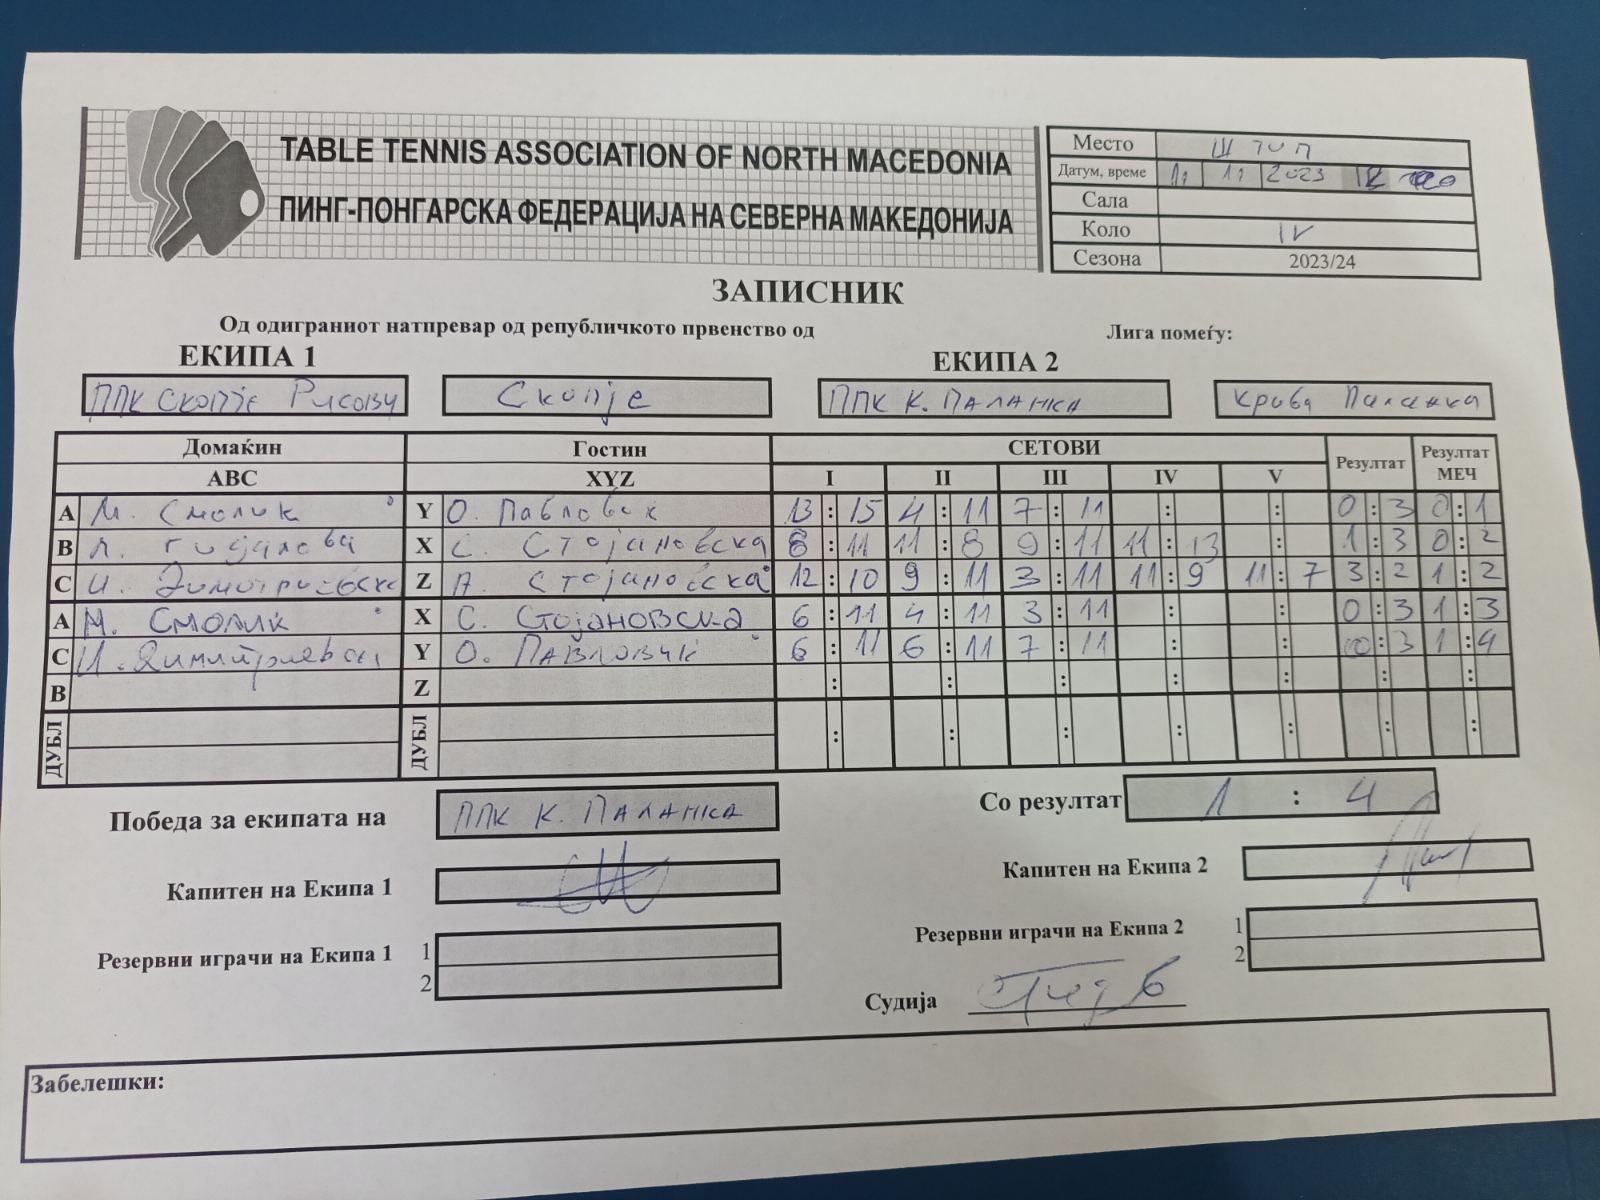 TABLE TENNIS ASSOCIATION OF NORTH MACEDONIA
ПИНГ-ПОНГАРСКА ФЕДЕРАЦИЈА НА СЕВЕРНА МАКЕДОНИЈА
Место Штип
Датум, време 11 11 2023
Сала
Коло IV
Сезона 2023/24
ЗАПИСНИК
Од одиграниот натпревар од републичкото првенство од Лига помеѓу:
ЕКИПА 1 ЕКИПА 2
ППК Скопје Скопје ППК К. ПАЛАНКА Крива Паланка
Домаќин Гостин СЕТОВИ Резултат Резултат МЕЧ
ABC XYZ I II III IV V
A М. Смолик Y О. Павловиќ 13 : 15 4 : 11 7 : 11 : : 0 : 3 0 : 1
B X С. Стојановска 8 : 11 11 : 8 9 : 11 11 : 13 : 1 : 3 0 : 2
C И. Димитриевска Z А. Стојановска 12 : 10 9 : 11 3 : 11 11 : 9 11 : 7 3 : 2 1 : 2
A М. СМОЛИК X С. СТОЈАНОВСКА 6 : 11 4 : 11 3 : 11 : : 0 : 3 1 : 3
C И. Димитриевски Y О. ПАВЛОВИЌ 6 : 11 6 : 11 7 : 11 : : 0 : 3 1 : 4
B Z : : : : : : :
ДУБЛ ДУБЛ : : : : : : :
Победа за екипата на ППК К. ПАЛАНКА Со резултат 1 : 4
Капитен на Екипа 1 Капитен на Екипа 2
Резервни играчи на Екипа 1 1 Резервни играчи на Екипа 2 1
2 2
Судија
Забелешки: